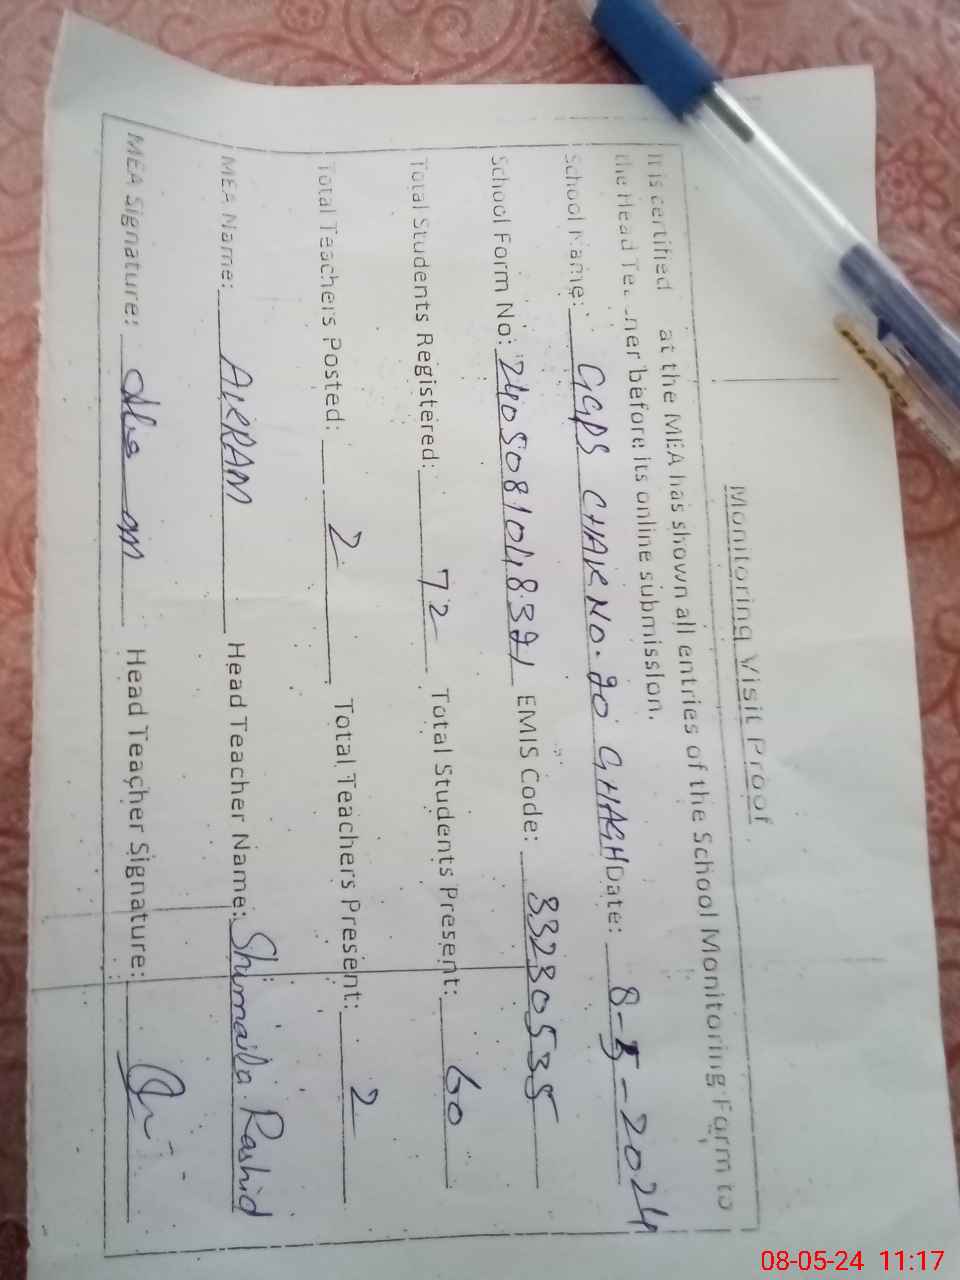 Monitoring Visit Proof
It is certified at the MEA has shown all entries of the School Monitoring Form to
the Head Te ner before its online submission.
School Name: GGPS CHAK NO. 20 GHAGH Date: 8-5-2024
School Form No: 2405081048371 EMIS Code: 33230535
Total Students Registered: 72 Total Students Present: 60
Total Teachers Posted: 2 Total Teachers Present: 2
MEA Name: AKRAM Head Teacher Name: Shumaila Rashid
MEA Signature: Head Teacher Signature:
PIANO
08-05-24 11:17